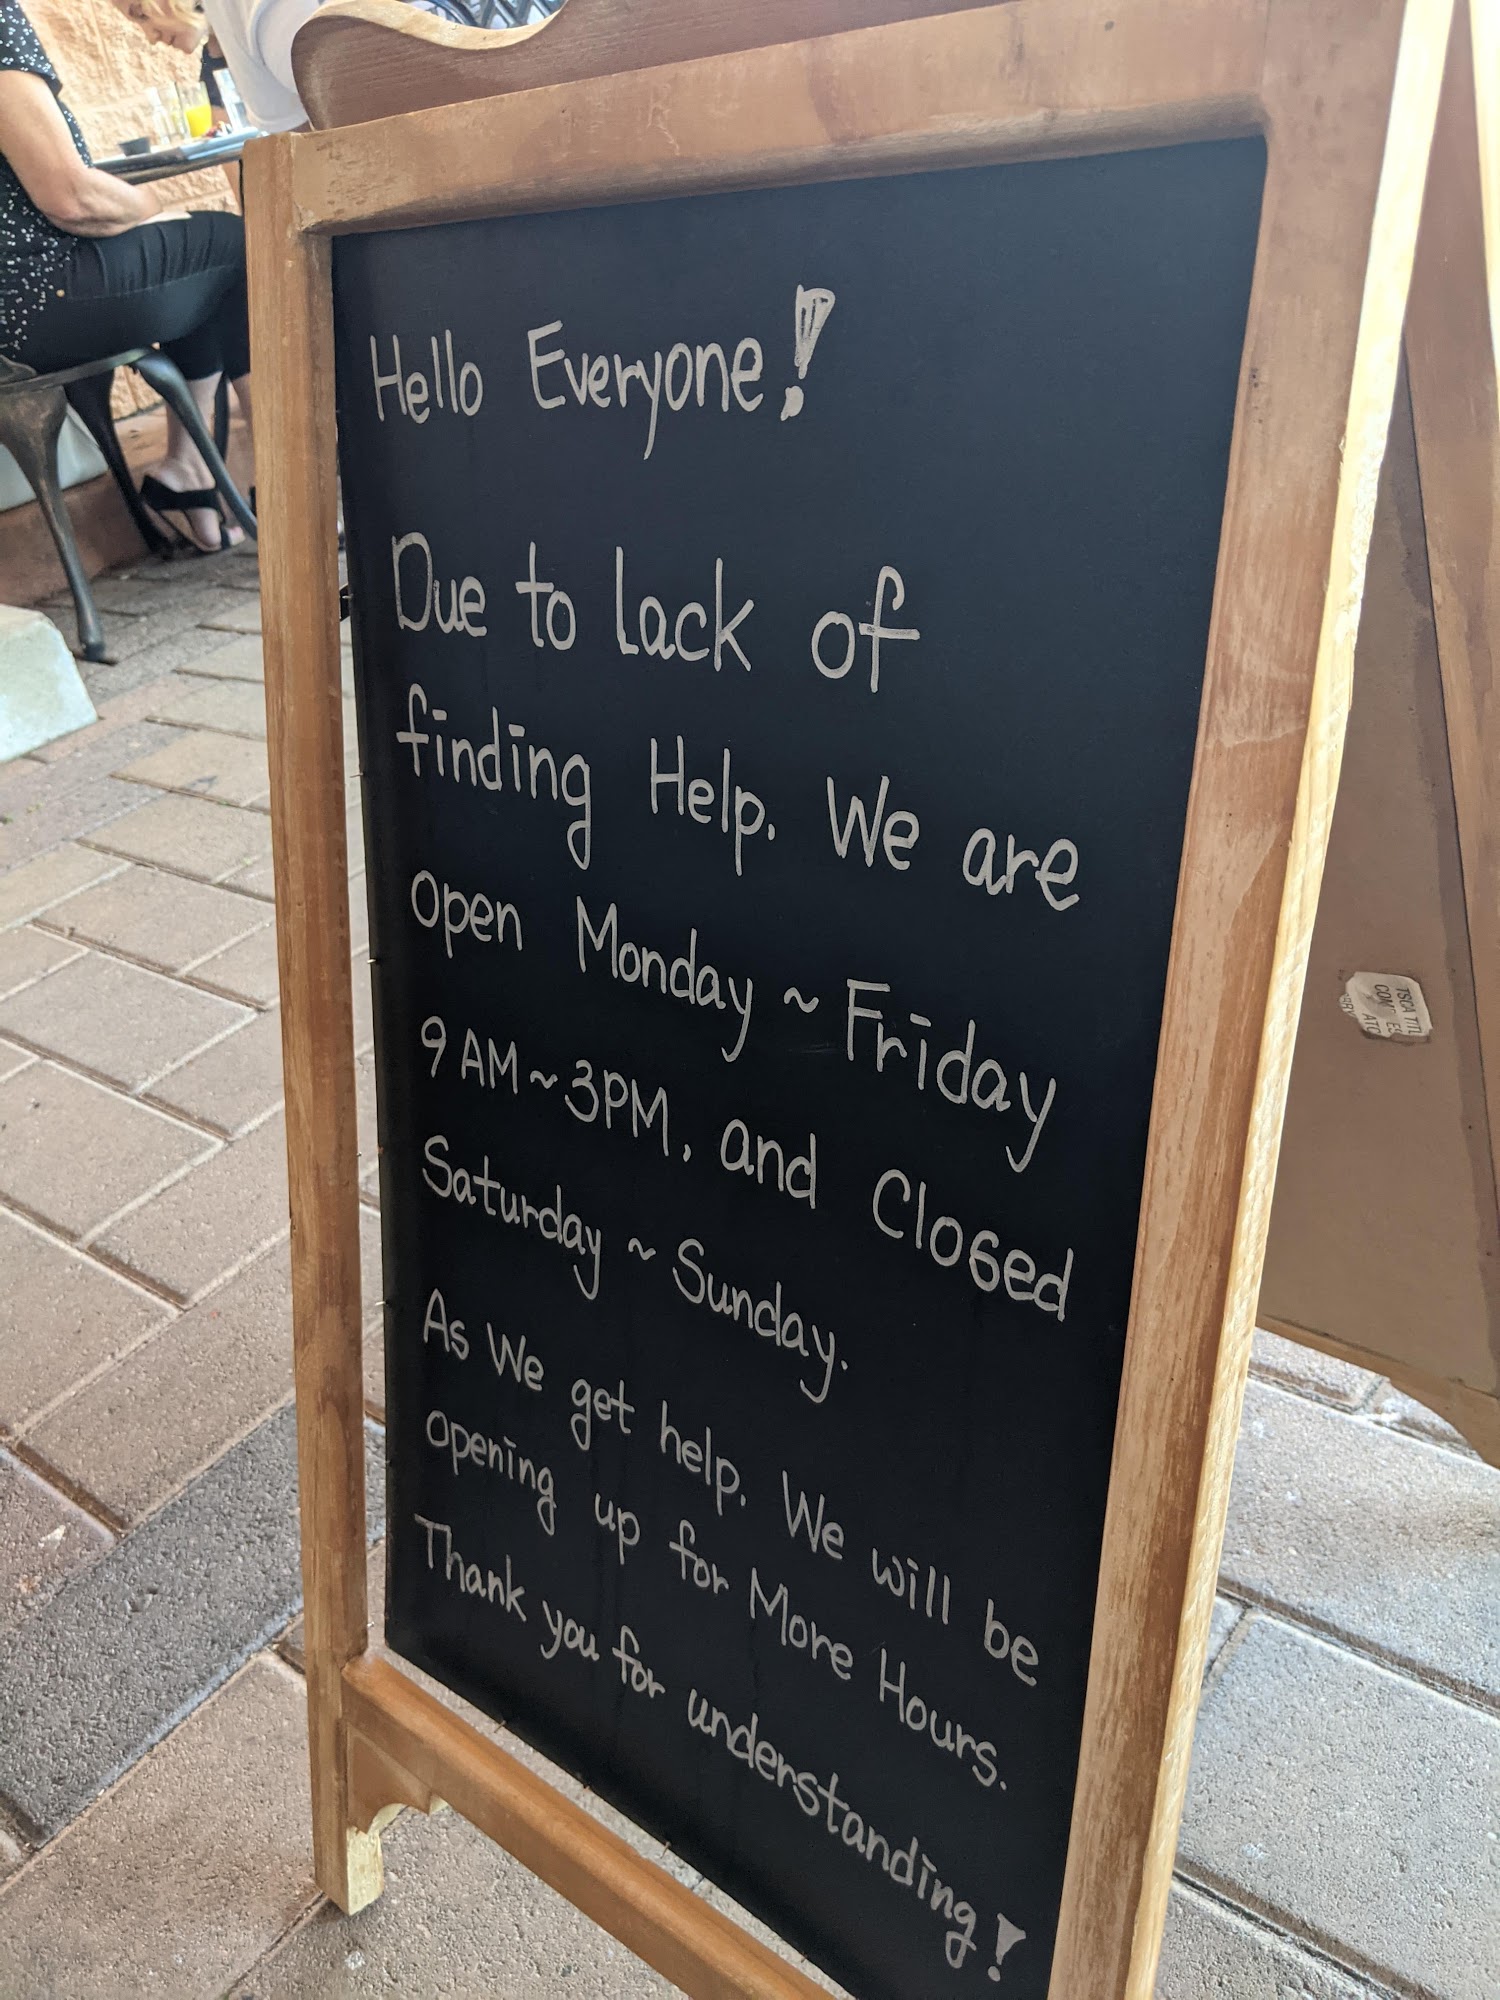 Hello Everyone!
Due to lack of
finding Help. We are
open Monday ~ Friday
9 AM ~ 3PM, and Closed
Saturday ~ Sunday.
As We get help. We will be
opening up for More Hours.
Thank you for understanding!
TSCA TITL
COM
ATC